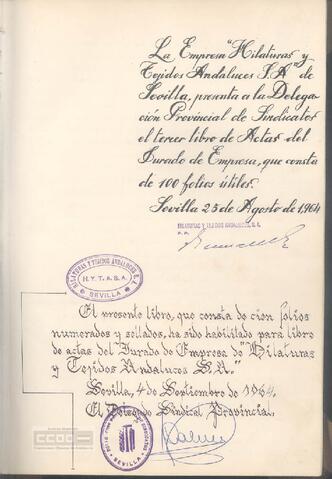 La Empresa "Hilaturas y
Tejidos Andaluces S.A" de
Sevilla, presenta a la Delega-
ción Provincial de Sindicatos
el tercer libro de Actas del
Jurado de Empresa, que consta
de 100 folios útiles.
Sevilla 25 de Agosto de 1,964
HILATURAS Y TEJIDOS ANDALUCES, S.A.
P. P.
HILATURAS Y TEJIDOS ANDALUCES S.A.
H.Y.T.A.S.A.
SEVILLA
El presente libro, que consta de cien folios
numerados y sellados, ha sido habilitado para libro
de actas del Jurado de Empresa de "Hilaturas
y Tejidos Andaluces S.A."
Sevilla, 4 de Septiembre de 1964.
El Delegado Sindical Provincial,
SEVILLA
CCOO